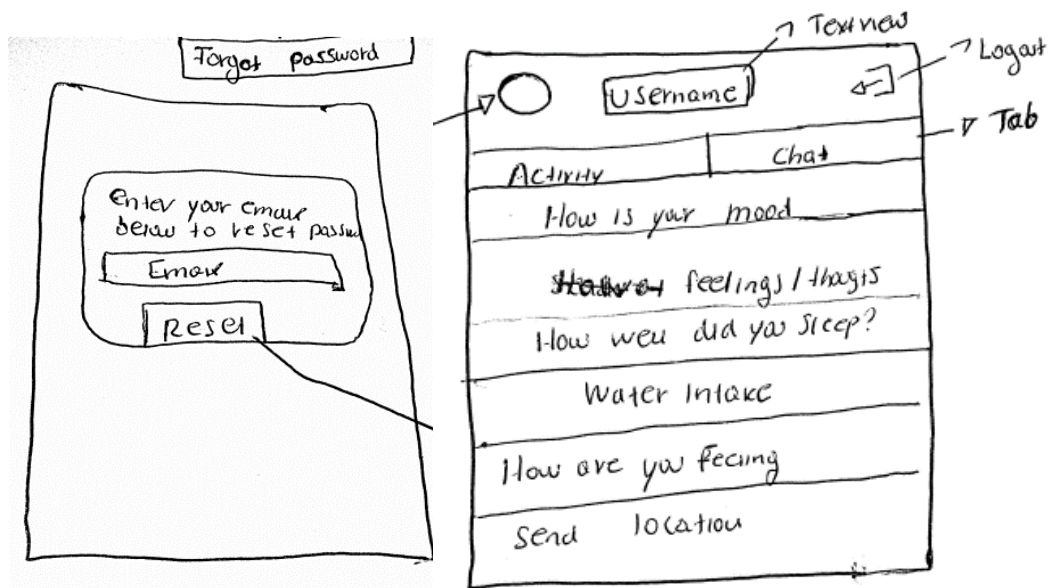 Forgot password
Enter your email
below to reset passw
Email
Reset
Textview
Logout
Username
Tab
Activity
Chat
How is your mood
feelings / thogts
How well did you sleep?
Water Intake
How are you feeling
Send location